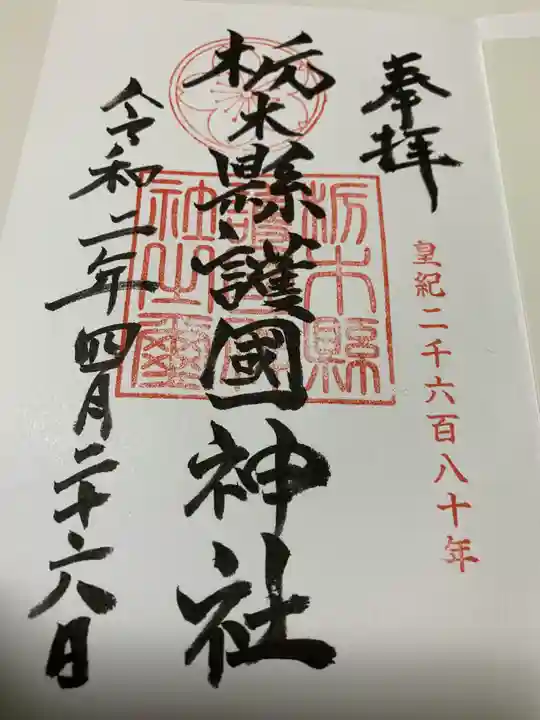 奉拝
皇紀二千六百八十年
栃木縣護國神社
栃木縣護國神社之璽
令和二年四月二十六日